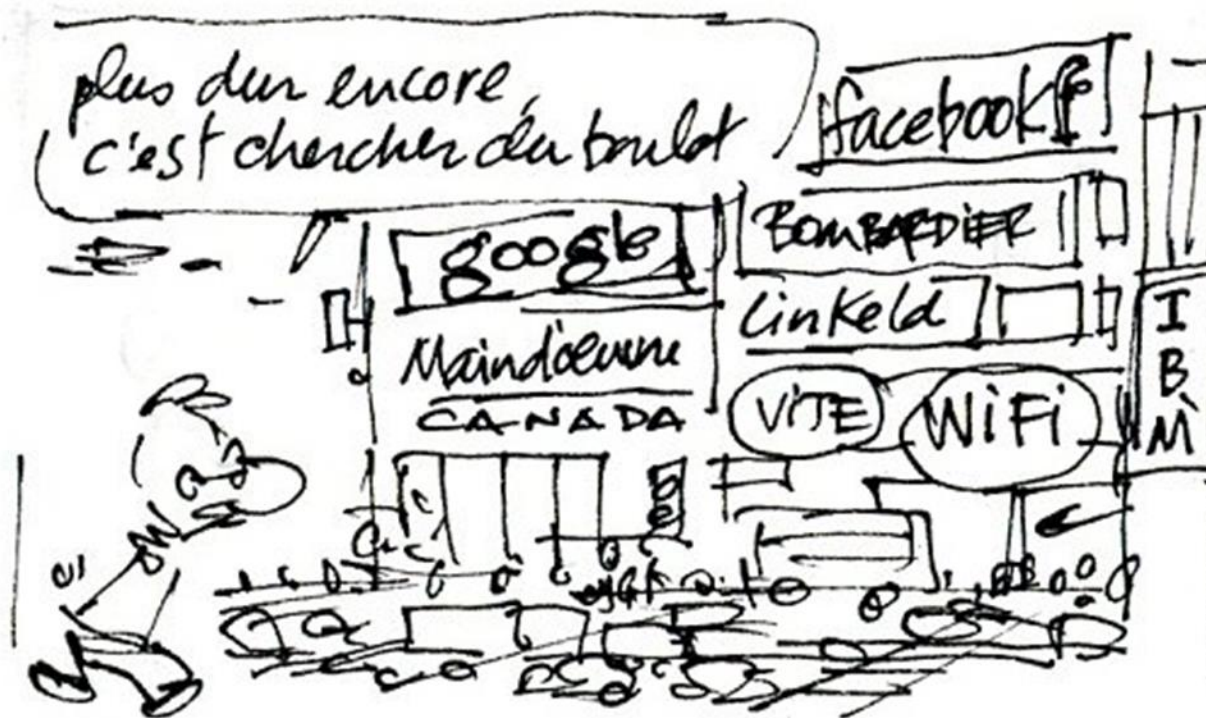 plus dur encore,
c'est chercher du boulot
facebook f
BOMBARDIER
google
LinKeld
Maind'œuvre
CANADA
VITE
WiFi
IBM